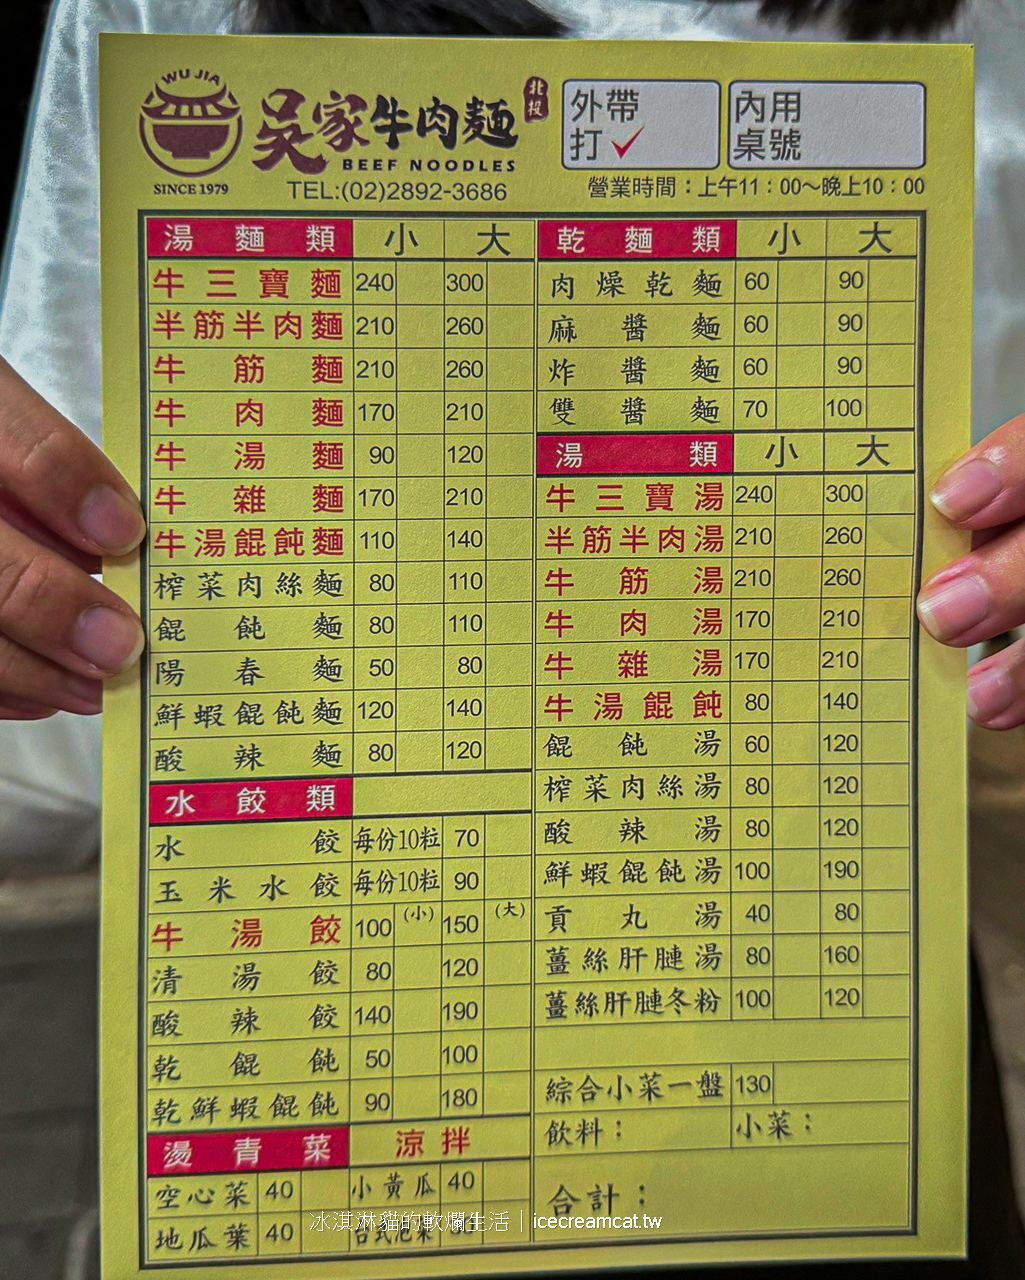 WU JIA
SINCE 1979
吳家牛肉麵
北投
BEEF NOODLES
TEL:(02)2892-3686
外帶
打✓
內用
桌號
營業時間：上午11：00～晚上10：00
湯麵類 小 大
牛三寶麵 240 300
半筋半肉麵 210 260
牛筋麵 210 260
牛肉麵 170 210
牛湯麵 90 120
牛雜麵 170 210
牛湯餛飩麵 110 140
榨菜肉絲麵 80 110
餛飩麵 80 110
陽春麵 50 80
鮮蝦餛飩麵 120 140
酸辣麵 80 120
水餃類
水餃 每份10粒 70
玉米水餃 每份10粒 90
牛湯餃 100 (小) 150 (大)
清湯餃 80 120
酸辣餃 140 190
乾餛飩 50 100
乾鮮蝦餛飩 90 180
燙青菜 涼拌
空心菜 40 小黃瓜 40
地瓜葉 40
乾麵類 小 大
肉燥乾麵 60 90
麻醬麵 60 90
炸醬麵 60 90
雙醬麵 70 100
湯類 小 大
牛三寶湯 240 300
半筋半肉湯 210 260
牛筋湯 210 260
牛肉湯 170 210
牛雜湯 170 210
牛湯餛飩 80 140
餛飩湯 60 120
榨菜肉絲湯 80 120
酸辣湯 80 120
鮮蝦餛飩湯 100 190
貢丸湯 40 80
薑絲肝腱湯 80 160
薑絲肝腱冬粉 100 120
綜合小菜一盤 130
飲料： 小菜：
合計：
冰淇淋貓的軟爛生活｜icecreamcat.tw